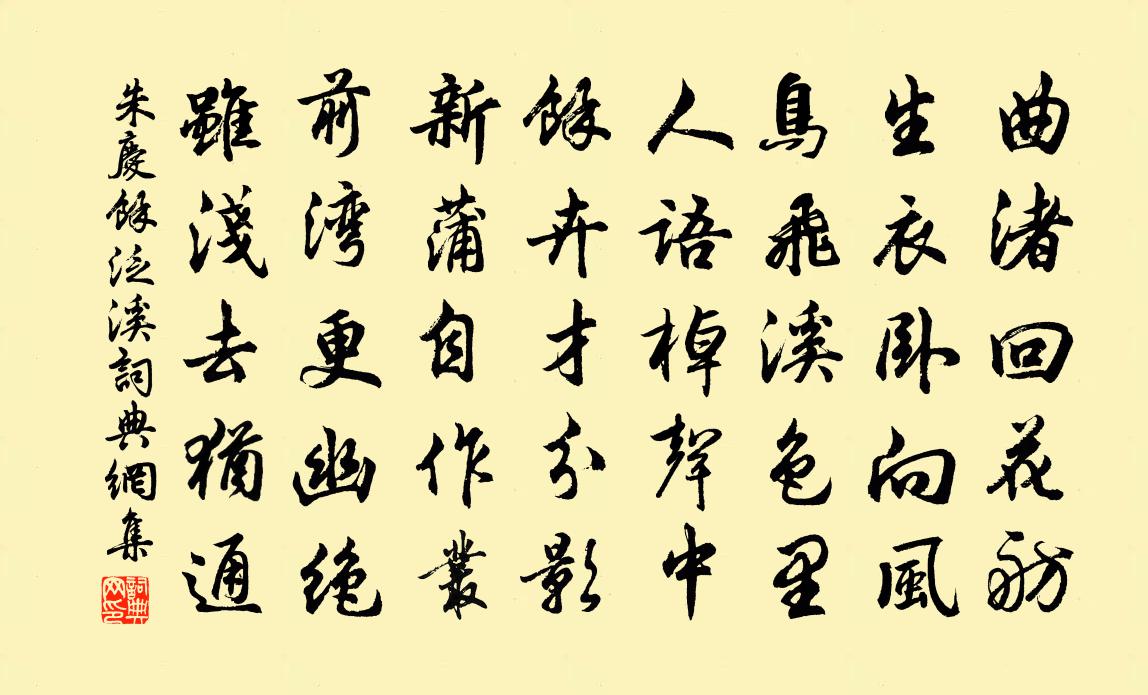 曲渚回花舫
生衣卧向風
鳥飛溪色里
人語棹聲中
餘卉才分影
新蒲自作叢
前湾更幽绝
雖淺去猶通
朱慶餘泛溪詞典網集
詞典網印